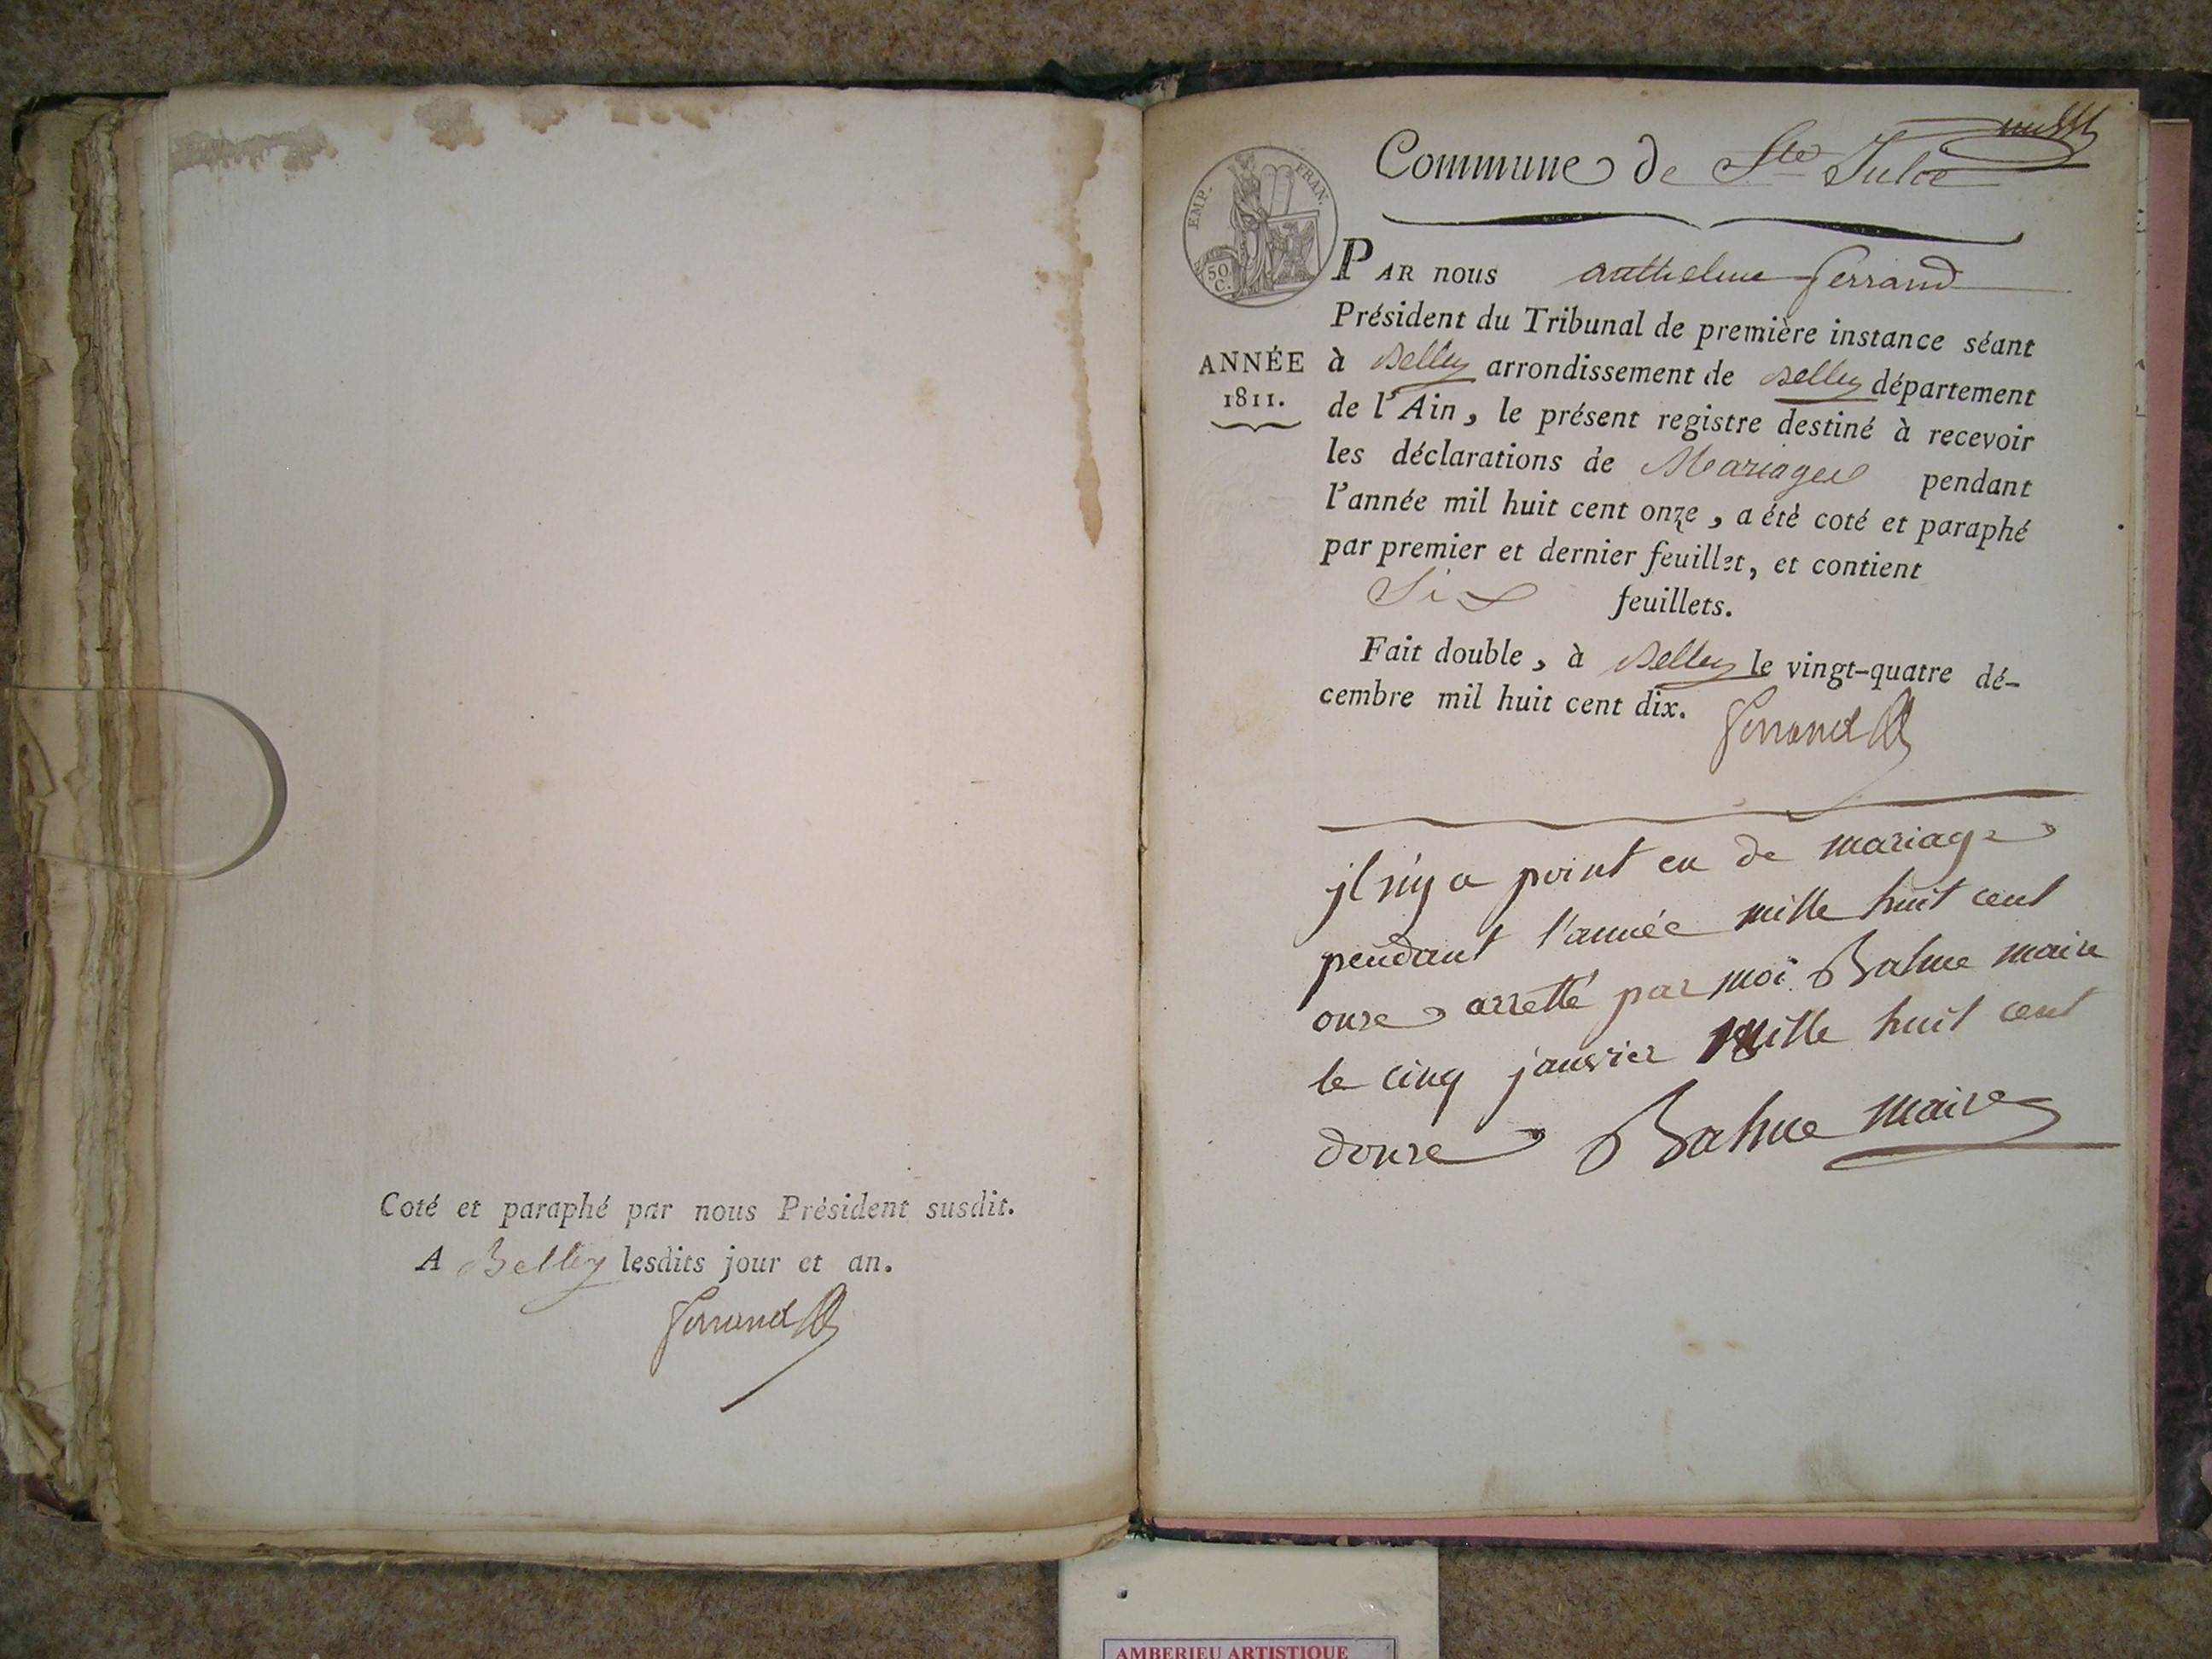 Coté et paraphé par nous Président susdit.
A Belley lesdits jour et an.
Ferrand
Commune de Ste Julie
EMP. FRAN.
50 C.
ANNÉE
1811.
PAR nous anthelme ferrand
Président du Tribunal de première instance séant
à Belley arrondissement de Belley département
de l'Ain, le présent registre destiné à recevoir
les déclarations de Mariages pendant
l'année mil huit cent onze, a été coté et paraphé
par premier et dernier feuillet, et contient
Six feuillets.
Fait double, à Belley le vingt-quatre dé-
cembre mil huit cent dix.
Ferrand
jl n'y a point eu de mariage
pendant l'année mille huit cent
onze arretté par moi Balme maire
le cinq janvier mille huit cent
douze Balme maire
AMBERIEU ARTISTIQUE